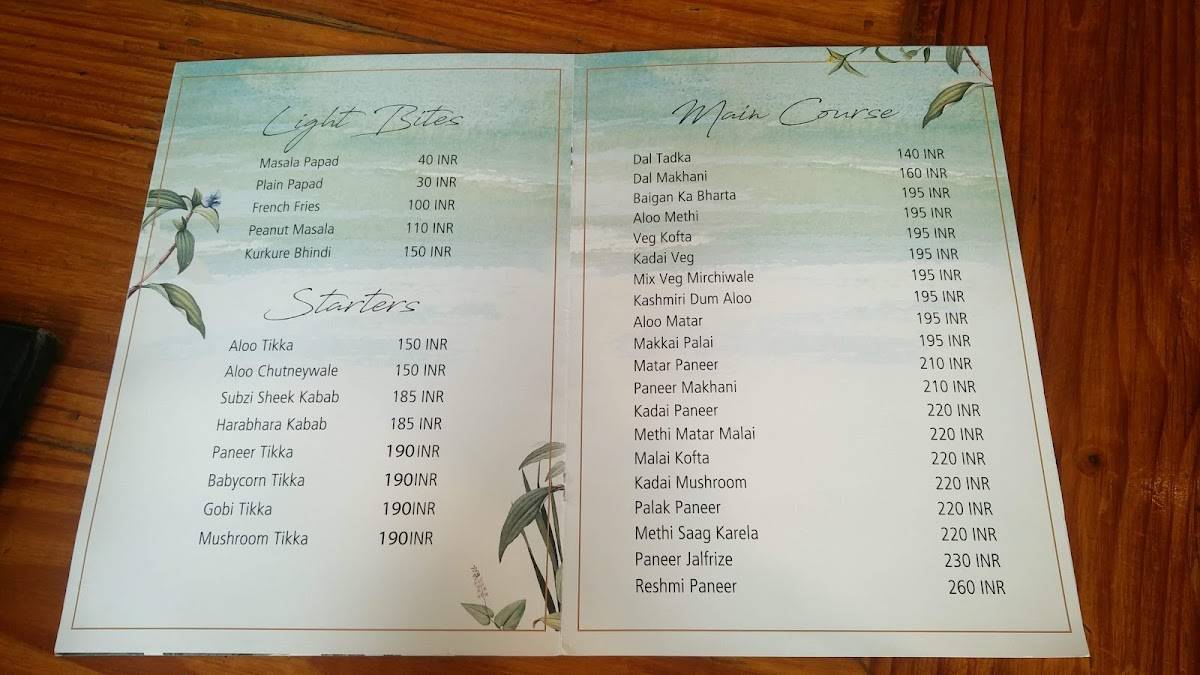 Light Bites
Masala Papad 40 INR
Plain Papad 30 INR
French Fries 100 INR
Peanut Masala 110 INR
Kurkure Bhindi 150 INR
Starters
Aloo Tikka 150 INR
Aloo Chutneywale 150 INR
Subzi Sheek Kabab 185 INR
Harabhara Kabab 185 INR
Paneer Tikka 190INR
Babycorn Tikka 190INR
Gobi Tikka 190INR
Mushroom Tikka 190INR
Main Course
Dal Tadka 140 INR
Dal Makhani 160 INR
Baigan Ka Bharta 195 INR
Aloo Methi 195 INR
Veg Kofta 195 INR
Kadai Veg 195 INR
Mix Veg Mirchiwale 195 INR
Kashmiri Dum Aloo 195 INR
Aloo Matar 195 INR
Makkai Palai 195 INR
Matar Paneer 210 INR
Paneer Makhani 210 INR
Kadai Paneer 220 INR
Methi Matar Malai 220 INR
Malai Kofta 220 INR
Kadai Mushroom 220 INR
Palak Paneer 220 INR
Methi Saag Karela 220 INR
Paneer Jalfrize 230 INR
Reshmi Paneer 260 INR